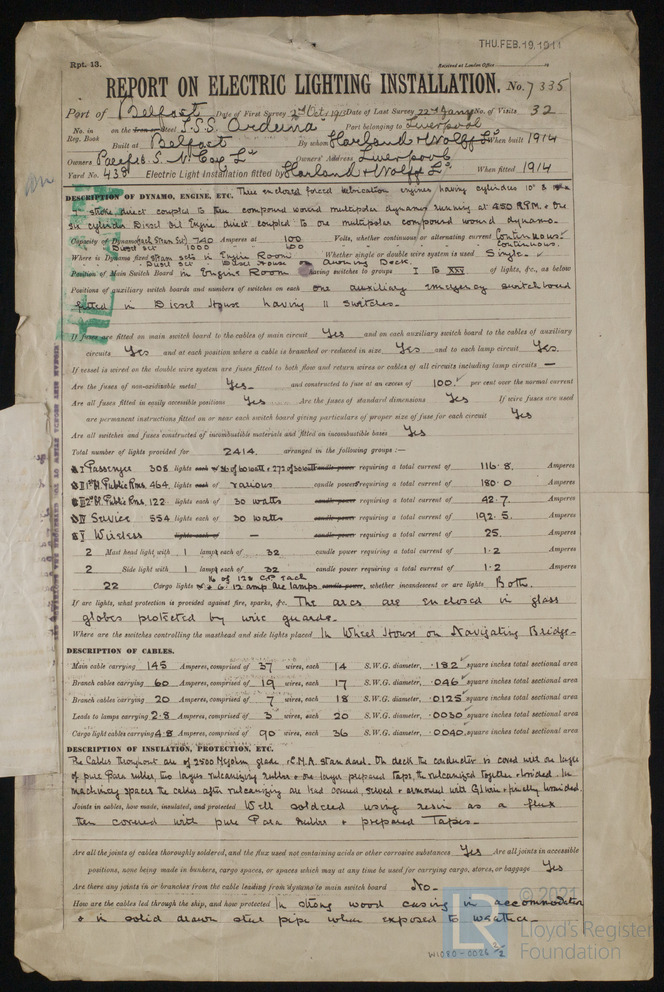 THU. FEB. 19. 1914
Rpt. 13.
Received at London Office
REPORT ON ELECTRIC LIGHTING INSTALLATION. No. 7335
Port of Belfast Date of First Survey 2nd Oct. Date of Last Survey 22nd Jany No. of Visits 32
No. in Reg. Book on the Iron or Steel T.S.S. Orduna Port belonging to Liverpool
Built at Belfast By whom Harland & Wolff Ld When built 1914
Owners Pacific S. N. Coy Ld Owners' Address Liverpool
Yard No. 438 Electric Light Installation fitted by Harland & Wolff Ld When fitted 1914
DESCRIPTION OF DYNAMO, ENGINE, ETC. Three enclosed forced lubrication engines having cylinders 10" &
stroke direct coupled to three compound wound multipolar dynamos running at 450 R.P.M. & one
six cylinder Diesel Oil Engine direct coupled to one multipolar compound wound dynamo.
Capacity of Dynamo (each Steam Set) 740 Amperes at 100 Volts, whether continuous or alternating current Continuous
Diesel set 1000 100 Continuous.
Where is Dynamo fixed Steam sets in Engine Room Whether single or double wire system is used Single.
Diesel set Diesel House on Awning Deck.
Position of Main Switch Board in Engine Room having switches to groups I to XXV of lights, &c., as below
Positions of auxiliary switch boards and numbers of switches on each one auxiliary emergency switchboard
fitted in Diesel House having 11 switches.
If fuses are fitted on main switch board to the cables of main circuit Yes and on each auxiliary switch board to the cables of auxiliary
circuits Yes and at each position where a cable is branched or reduced in size Yes and to each lamp circuit Yes
If vessel is wired on the double wire system are fuses fitted to both flow and return wires or cables of all circuits including lamp circuits —
Are the fuses of non-oxidizable metal Yes and constructed to fuse at an excess of 100 per cent over the normal current
Are all fuses fitted in easily accessible positions Yes Are the fuses of standard dimensions Yes If wire fuses are used
are permanent instructions fitted on or near each switch board giving particulars of proper size of fuse for each circuit Yes
Are all switches and fuses constructed of incombustible materials and fitted on incombustible bases Yes
Total number of lights provided for 2414. arranged in the following groups :—
Passenger 308 lights each of 36 of 60 watts & 272 of 30 watts candle power requiring a total current of 116.8. Amperes
1st Cl. Public Rms. 464 lights each of various candle power requiring a total current of 180.0 Amperes
2nd Cl. Public Rms. 122 lights each of 30 watts candle power requiring a total current of 42.7. Amperes
Service 554 lights each of 30 watts candle power requiring a total current of 192.5. Amperes
Wireless lights each of — candle power requiring a total current of 25. Amperes
2 Mast head light with 1 lamp each of 32 candle power requiring a total current of 1.2 Amperes
2 Side light with 1 lamp each of 32 candle power requiring a total current of 1.2 Amperes
22 Cargo lights of 16 of 128 C.P. each & 6. 12 amp Arc lamps candle power, whether incandescent or arc lights Both.
If arc lights, what protection is provided against fire, sparks, &c. The arcs are enclosed in glass
globes protected by wire guards.
Where are the switches controlling the masthead and side lights placed In Wheel House on Navigating Bridge.
DESCRIPTION OF CABLES.
Main cable carrying 145 Amperes, comprised of 37 wires, each 14 S.W.G. diameter, .182 square inches total sectional area
Branch cables carrying 60 Amperes, comprised of 19 wires, each 17 S.W.G. diameter, .046 square inches total sectional area
Branch cables carrying 20 Amperes, comprised of 7 wires, each 18 S.W.G. diameter, .0125 square inches total sectional area
Leads to lamps carrying 2.8 Amperes, comprised of 3 wires, each 20 S.W.G. diameter, .0030 square inches total sectional area
Cargo light cables carrying 4.8 Amperes, comprised of 90 wires, each 36 S.W.G. diameter, .0040 square inches total sectional area
DESCRIPTION OF INSULATION, PROTECTION, ETC.
The Cables throughout are of 2500 Megohm grade & C.M.A. standard. On deck the conductor is covered with one layer
of pure Para rubber, two layers vulcanizing rubber & one layer prepared tape, the vulcanized together & braided. In
machinery spaces the cables after vulcanizing are lead covered, served & armoured with G.I. wire & finally braided.
Joints in cables, how made, insulated, and protected Well soldered using resin as a flux
then covered with pure Para rubber & prepared Tapes.
Are all the joints of cables thoroughly soldered, and the flux used not containing acids or other corrosive substances Yes Are all joints in accessible
positions, none being made in bunkers, cargo spaces, or spaces which may at any time be used for carrying cargo, stores, or baggage Yes
Are there any joints in or branches from the cable leading from dynamo to main switch board No.
How are the cables led through the ship, and how protected In strong wood casing in accommodation
& in solid drawn steel pipe when exposed to weather.
© 2021
Lloyd's Register
Foundation
W1080-0026 2/2